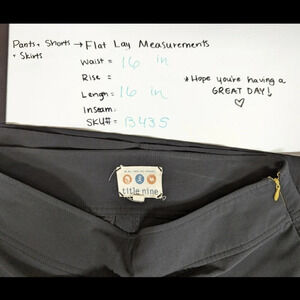 Pants, Shorts → Flat Lay Measurements
+ Skirts
Waist = 16 in
Rise =
Length = 16 in
Inseam:
SKU# = B435
* Hope you're having a
GREAT DAY!
♡
title nine